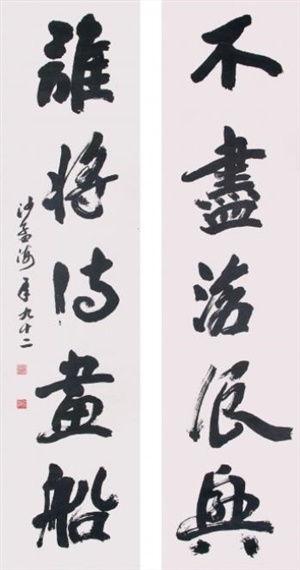 不盡滄浪興
誰將詩畫船
沙孟海年九十二